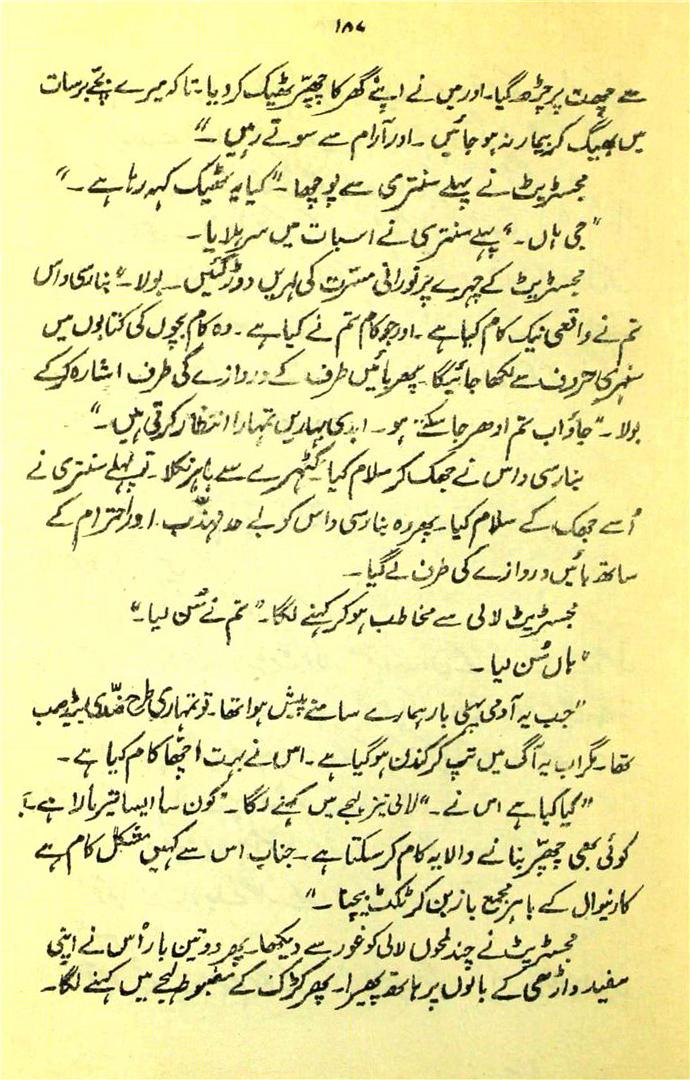 ۱۸۷
سے چھت پر چڑھ گیا۔ اور میں نے اپنے گھر کا چھپّر ٹھیک کر دیا۔ تاکہ میرے بچّے برسات
میں بھیگ کر بیمار نہ ہو جائیں ۔ اور آرام سے سوتے رہیں ۔"
مجسٹریٹ نے پہلے سنتری سے پوچھا ۔ "کیا یہ ٹھیک کہہ رہا ہے ۔"
"جی ہاں ۔" پہلے سنتری نے اسبات میں سر ہلایا ۔
مجسٹریٹ کے چہرے پر نورانی مسرّت کی لہریں دوڑ گئیں ۔ بولا ۔ "بنارسی داس
تم نے واقعی نیک کام کیا ہے ۔ اور جو کام تم نے کیا ہے ۔ وہ کام بچوں کی کتابوں میں
سنہری حروف سے لکھا جائیگا ۔ پھر بائیں طرف کے دروازے کی طرف اشارہ کر کے
بولا ۔ "جاؤ اب تم ادھر جا سکتے ہو ۔ ابدی بہاریں تمہارا انتظار کرتی ہیں ۔"
بنارسی داس نے جھک کر سلام کیا ۔ کٹہرے سے باہر نکلا ۔ تو پہلے سنتری نے
اُسے جھک کے سلام کیا ۔ پھر وہ بنارسی داس کو بے حد مہذّب اور احترام کے
ساتھ بائیں دروازے کی طرف لے گیا ۔
مجسٹریٹ لالی سے مخاطب ہو کر کہنے لگا ۔ "تم نے سُن لیا ۔"
"ہاں سُن لیا ۔
"جب یہ آدمی پہلی بار ہمارے سامنے پیش ہوا تھا ۔ تو تمہاری طرح ضدّی
تھا ۔ مگر اب یہ آگ میں تپ کر کندن ہو گیا ہے ۔ اس نے بہت اچھّا کام کیا ہے ۔
"کیا کیا ہے اس نے ۔" لالی تیز لہجے میں کہنے لگا ۔ "کون سا ایسا تیر مارا ہے ۔
کوئی بھی چھپّر بنانے والا یہ کام کر سکتا ہے ۔ جناب اس سے کہیں مشکل کام ہے
کارنیوال کے باہر مجمع باز بن کر ٹکٹ بیچنا ۔"
مجسٹریٹ نے چند لمحوں لالی کو غور سے دیکھا ۔ پھر دو تین بار اُس نے اپنی
سفید داڑھی کے بالوں پر ہاتھ پھیرا ۔ پھر کڑک کے مضبوط لہجے میں کہنے لگا ۔